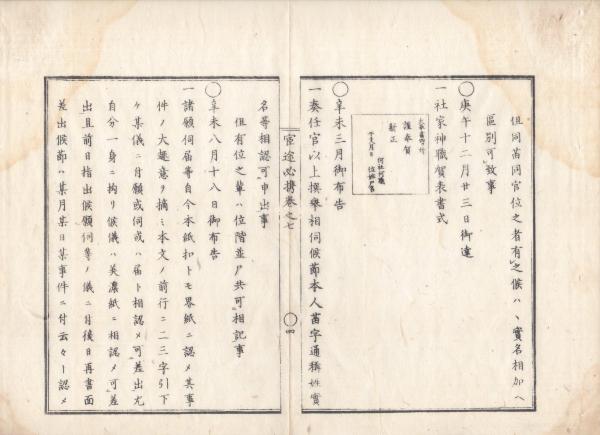 但同苗同官位之者有之候ハヽ實名相加ヘ
區別可致事
◯庚午十二月廿三日御達
一社家神職賀表書式
大奉書竪折
謹奉賀
新正
干支月日
何社何職
位姓名
◯辛未三月御布告
一奏任官以上撰擧相伺候節本人苗字通稱姓實
宦途必携巻之七
◯四
名等相認可申出事
但有位之輩ハ位階並戸共可相記事
◯辛未八月十八日御布告
一諸願伺届等自今本紙扣トモ界紙ニ認メ其事
件ノ大趣意ヲ摘ミ本文ノ前行ニ二三字引下
ケ某儀ニ付願或伺或ハ届ト相認メ可差出尤
自分一身ニ拘リ候儀ハ美濃紙ニ相認メ可差
出且前日指出候願伺等ノ儀ニ付後日再書面
差出候節ハ某月某日某事件ニ付云々ト認メ